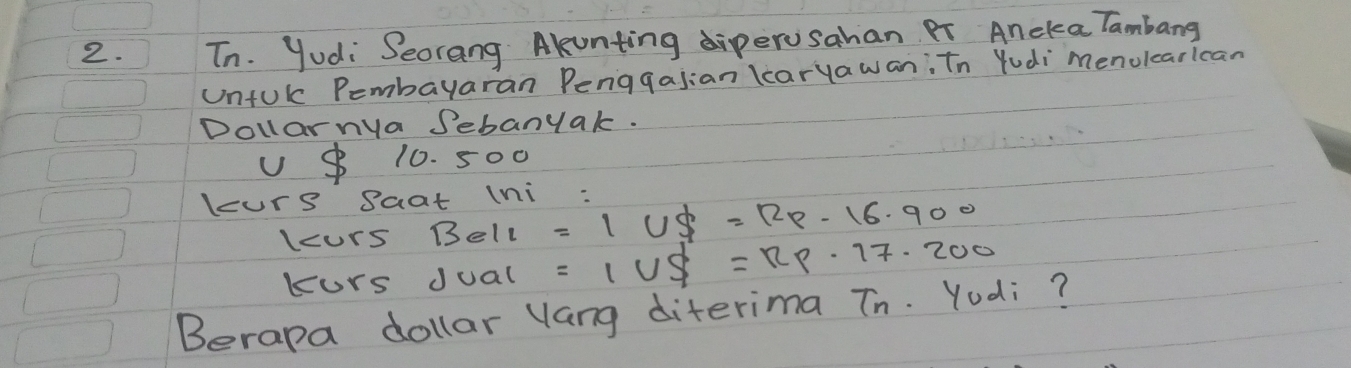 2. Tn. Yudi Seorang Akunting diperusahan PT Aneka Tambang
untuk Pembayaran Penggajian karyawan. Tn Yudi menukarkan
Dollarnya Sebanyak.
U $ 10.500
kurs saat ini :
kurs Beli = 1 U$ = Rp. 16.900
kurs Jual = 1 U$ = Rp. 17.200
Berapa dollar yang diterima Tn. Yudi ?